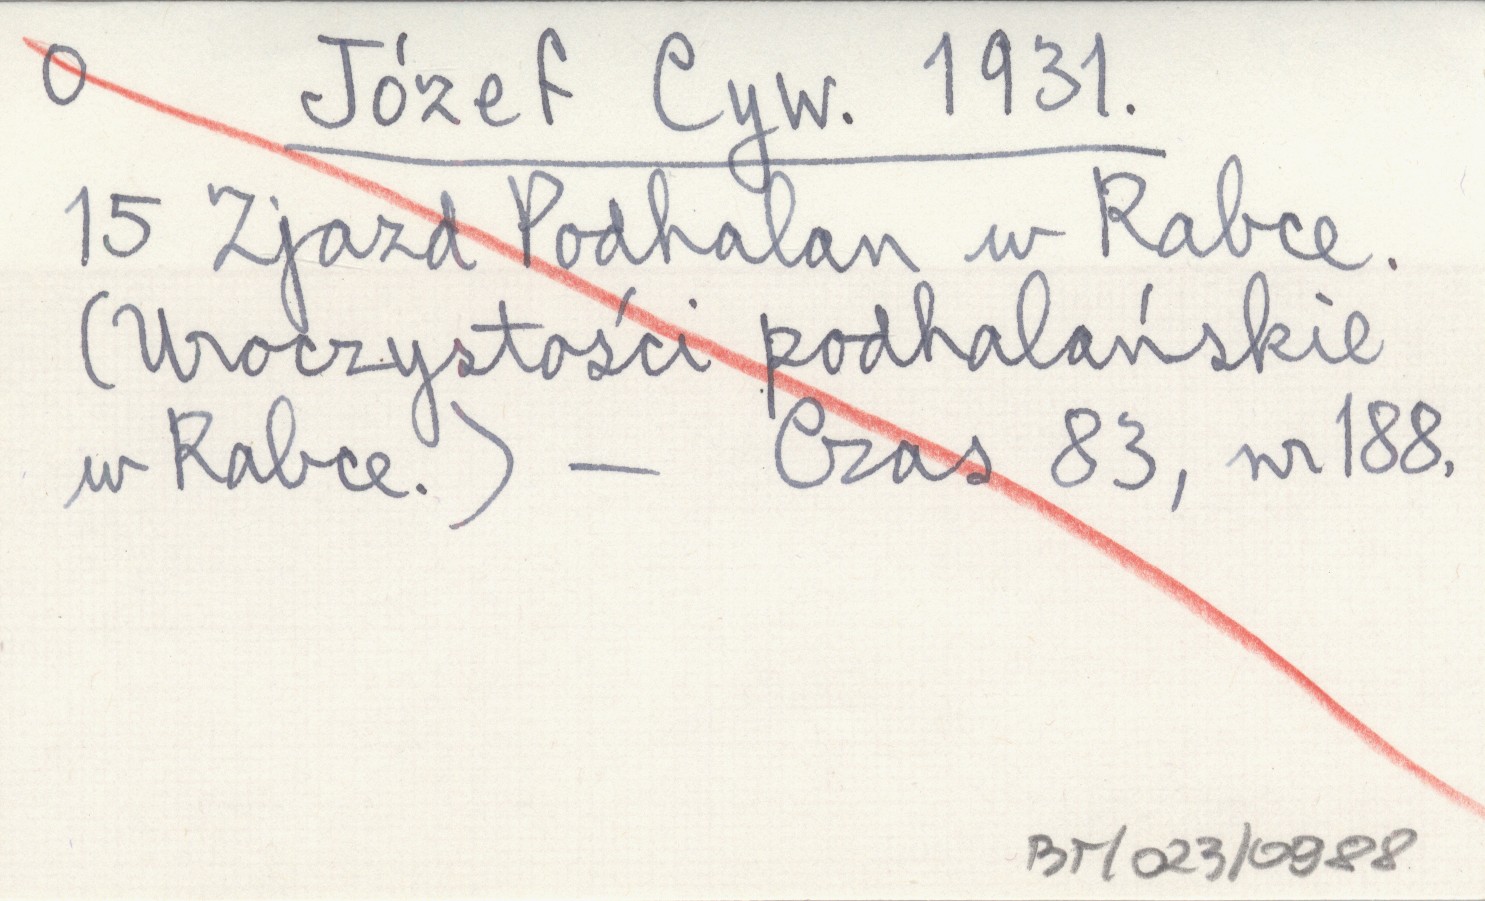 0 Józef Cyw. 1931.
15 Zjazd Podhalan w Rabce.
(Uroczystości podhalańskie
w Rabce.) — Czas 83, nr 188.
BM/023/0988